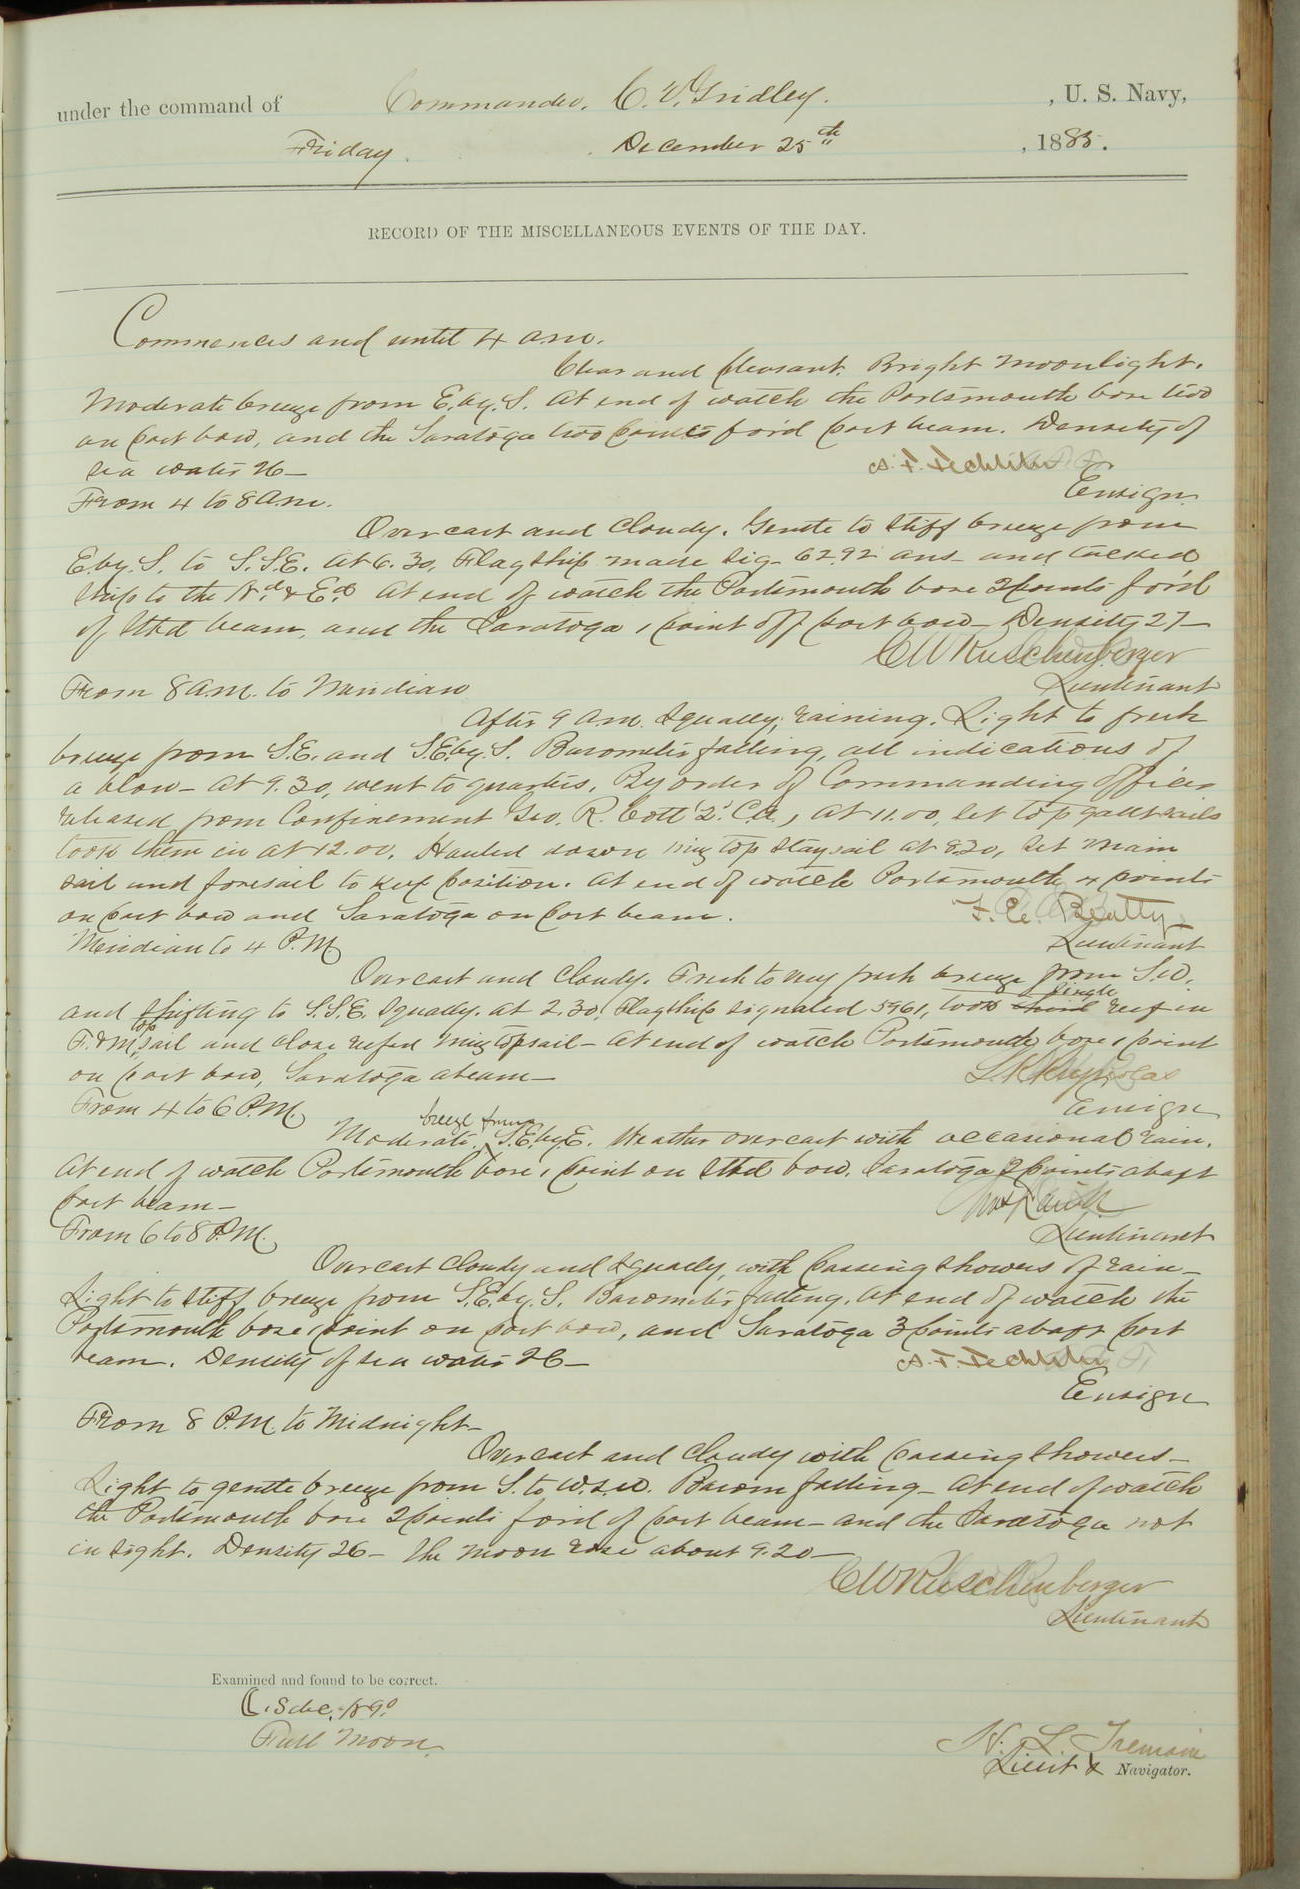 under the command of Commander, C. V. Gridley. , U. S. Navy,
Friday. December 25th , 1885.
RECORD OF THE MISCELLANEOUS EVENTS OF THE DAY.
Commences and until 4 a.m.
Clear and pleasant. Bright moonlight.
Moderate breeze from E. by. S. At end of watch the Portsmouth bore two
on port bow, and the Saratoga two points for'd port beam. Density of
sea water 26—
A. F. Fechteler
Ensign.
From 4 to 8 a.m.
Overcast and cloudy. Gentle to stiff breeze from
E by. S. to S.S.E. At 6.30, Flagship made sig- 6292 ans- and tacked
ship to the Nd. & Ed. At end of watch the Portsmouth bore 2 points for'd
of Stbd beam, and the Saratoga 1 point off port bow— Density 27—
C W Ruschenberger
Lieutenant
From 8 a.m. to Meridian
After 9 a.m. squally, raining. Light to fresh
breeze from S.E. and S.E. by. S. Barometer falling, all indications of
a blow— At 9.30, went to quarters. By order of Commanding Officer
released from Confinement Geo. R. Cott 2' C.a., At 11.00, set top gallt sails
took them in at 12.00. Hauled down miz top staysail at 8.30, set main
sail and foresail to keep position. At end of watch Portsmouth 4 points
on port bow and Saratoga on port beam.
F. E. Beatty
Lieutenant
Meridian to 4 P.M.
Overcast and cloudy. Fresh to very fresh breeze from S.E.
and shifting to S.S.E. Squally. At 2.30, Flagship signaled 5961, took single reef in
F. & M. top sail and close reefed miz topsail— At end of watch Portsmouth bore 1 point
on port bow, Saratoga abeam—
Ensign
From 4 to 6 P.M.
Moderate breeze from S.E. by. E. Weather overcast with occasional rain.
At end of watch Portsmouth bore 1 point on Stbd bow. Saratoga 2 points abaft
port beam—
Lieutenant
From 6 to 8 P.M.
Overcast cloudy and squally, with passing showers of rain—
Light to stiff breeze from S.E. by. S. Barometer falling. At end of watch the
Portsmouth bore 1 point on port bow, and Saratoga 3 points abaft port
beam. Density of sea water 26—
A. F. Fechteler
Ensign
From 8 P.M. to Midnight—
Overcast and cloudy with passing showers—
Light to gentle breeze from S. to W.S.W. Barom falling— At end of watch
the Portsmouth bore 2 points for'd of port beam— and the Saratoga not
in sight. Density 26— The moon rose about 9.20—
C W Ruschenberger
Lieutenant
Examined and found to be correct.
Full Moon.
H. L. Tremain
Lieut & Navigator.